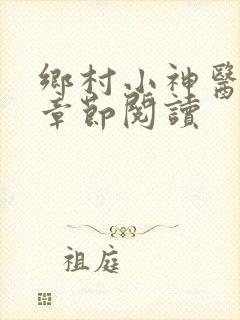 鄉村小神醫
章節閱讀
祖庭